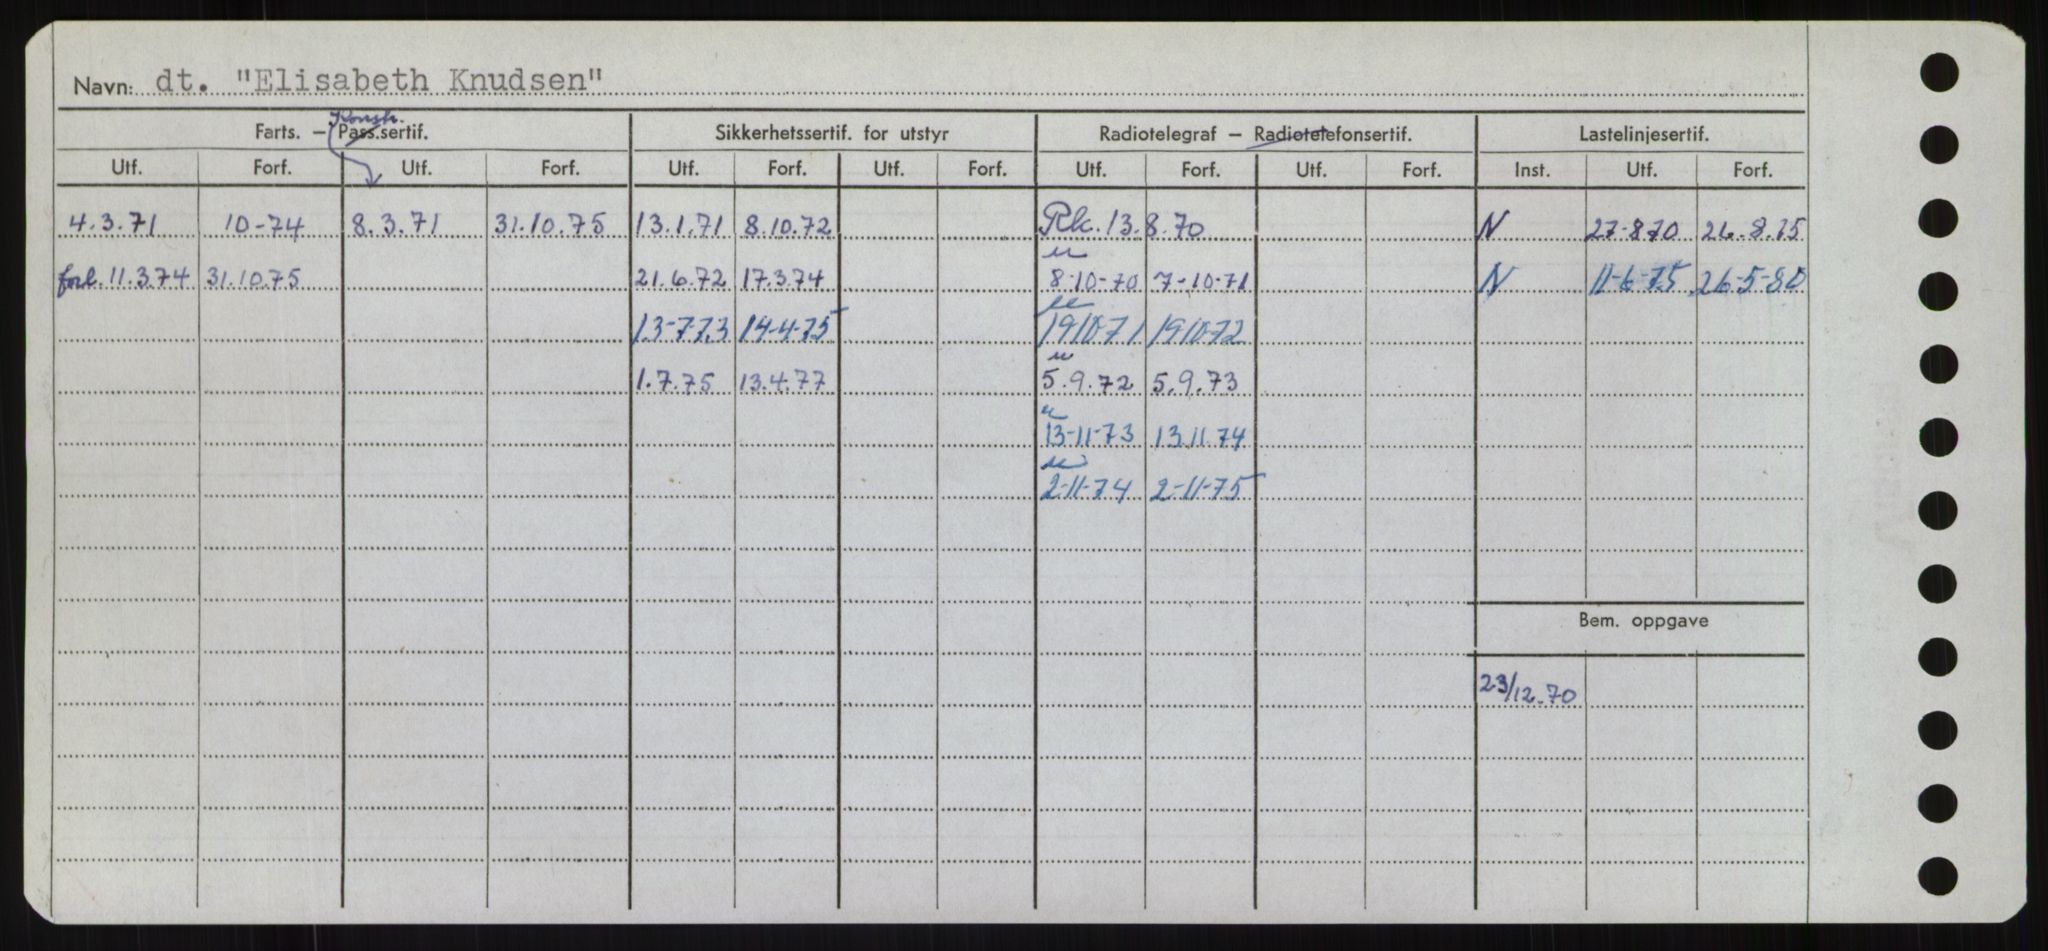 Navn: dt. "Elisabeth Knudsen"
Konstr.
Farts. – Pass.sertif. Sikkerhetssertif. for utstyr Radiotelegraf – Radiotelefonsertif. Lastelinjesertif.
Utf. Forf. Utf. Forf. Utf. Forf. Utf. Forf. Utf. Forf. Utf. Forf. Inst. Utf. Forf.
4.3.71 10-74 8.3.71 31.10.75 13.1.71 8.10.72 Rk. 13.8.70 N 27-8-70 26.8.75
forl. 11.3.74 31.10.75 21.6.72 17.3.74 8-10-70 7-10-71 N 11-6-75 26-5-80
13-7-73 14-4-75 19/10-71 19/10-72
1.7.75 13.4.77 5.9.72 5.9.73
13-11-73 13.11.74
2-11-74 2-11-75
Bem. oppgave
23/12.70